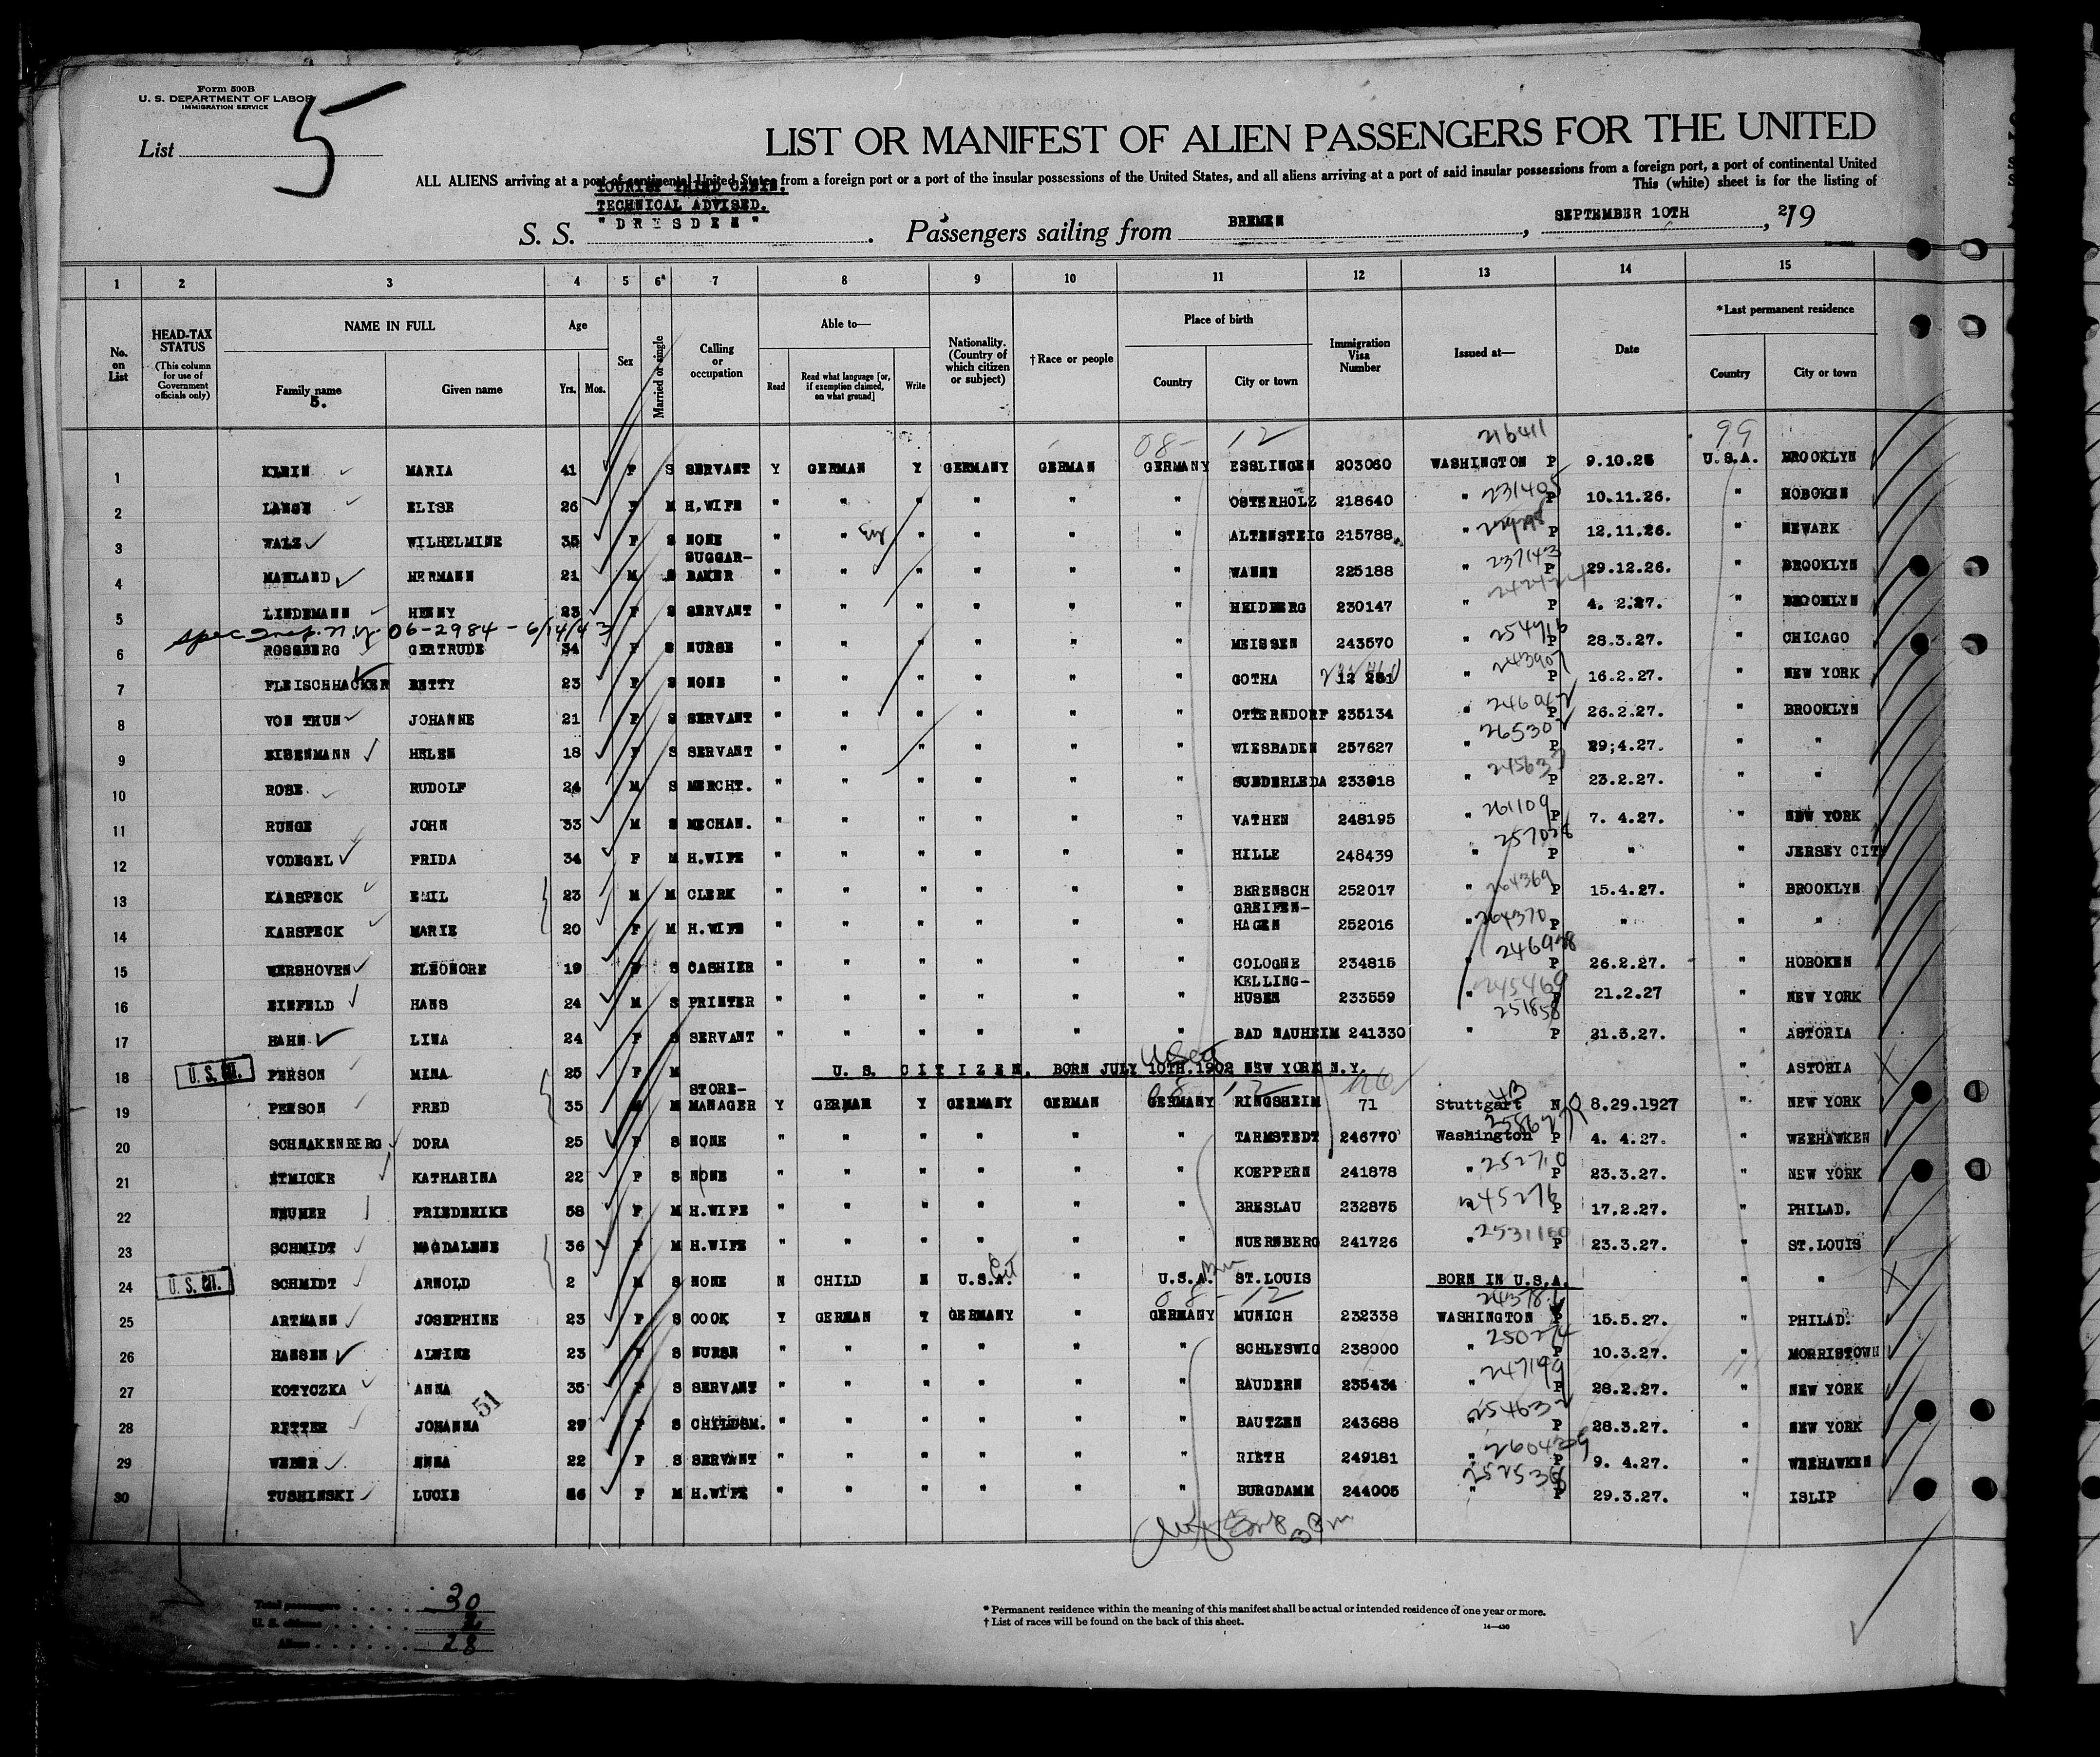 Form 500B
U. S. DEPARTMENT OF LABOR
IMMIGRATION SERVICE
List 5
LIST OR MANIFEST OF ALIEN PASSENGERS FOR THE UNITED
ALL ALIENS arriving at a port of continental United States from a foreign port or a port of the insular possessions of the United States, and all aliens arriving at a port of said insular possessions from a foreign port, a port of continental United
This (white) sheet is for the listing of
TOURIST THIRD CABIN.
TECHNICAL ADVISED.
S. S. "DRESDEN". Passengers sailing from BREMEN, SEPTEMBER 10TH, 27 19
1 2 3 4 5 6* 7 8 9 10 11 12 13 14 15
No. on List HEAD-TAX STATUS (This column for use of Government officials only) NAME IN FULL Family name Given name Age Yrs. Mos. Sex Married or single Calling or occupation Able to— Read Read what language [or, if exemption claimed, on what ground] Write Nationality. (Country of which citizen or subject) †Race or people Place of birth Country City or town Immigration Visa Number Issued at— Date *Last permanent residence Country City or town
5.
08- 12 216411 99
1 KLEIN MARIA 41 F S SERVANT Y GERMAN Y GERMANY GERMAN GERMANY ESSLINGEN 203060 WASHINGTON P 9.10.26 U.S.A. BROOKLYN
2 LANGE ELISE 26 F M H.WIFE " " " " " " OSTERHOLZ 218640 " 231405 P 10.11.26. " HOBOKEN
3 WALZ WILHELMINE 35 F S NONE " " " " " " ALTENSTEIG 215788 " P 12.11.26. " NEWARK
4 MAHLAND HERMANN 21 M S SUGGAR-BAKER " " " " " " WANNE 225188 " 237143 P 29.12.26. " BROOKLYN
5 LINDEMANN HENNY 23 F S SERVANT " " " " " " HEIDBERG 230147 " 242424 P 4. 2.27. " BROOKLYN
06-2984 - 6/14/43
6 ROSSBERG GERTRUDE 34 F S NURSE " " " " " " MEISSEN 243570 " 254916 P 28.3.27. " CHICAGO
7 FLEISCHHACKER BETTY 23 F S NONE " " " " " " GOTHA " 243907 P 16.2.27. " NEW YORK
8 VON THUN JOHANNE 21 F S SERVANT " " " " " " OTTERNDORF 235134 " P 26.2.27. " BROOKLYN
9 EIBENMANN HELEN 18 F S SERVANT " " " " " " WIESBADEN 257627 " 265302 P 29;4.27. " "
10 ROSE RUDOLF 24 M S MERCHT. " " " " " " SUEDERLEDA 233918 " 245637 P 23.2.27. " "
11 RUNGE JOHN 33 M S MECHAN. " " " " " " VATHEN 248195 " 261109 P 7. 4.27. " NEW YORK
12 VODEGEL FRIDA 34 F M H.WIFE " " " " " " HILLE 248439 " P " " JERSEY CITY
13 KARSPECK EMIL 23 M M CLERK " " " " " " BERENSCH 252017 " 264369 P 15.4.27. " BROOKLYN
14 KARSPECK MARIE 20 F M H.WIFE " " " " " " GREIFEN-HAGEN 252016 " 264370 P " " "
15 WERSHOVEN ELEONORE 19 F S CASHIER " " " " " " COLOGNE 234815 " P 26.2.27. " HOBOKEN
16 EINFELD HANS 24 M S PRINTER " " " " " " KELLING-HUSEN 233559 " 245469 P 21.2.27 " NEW YORK
17 HAHN LINA 24 F S SERVANT " " " " " " BAD NAUHEIM 241330 " 251858 P 21.3.27. " ASTORIA
18 U. S. CIT. PERSON MINA 25 F M U. S. CITIZEN. BORN JULY 10TH.1902 NEW YORK N.Y. " ASTORIA
08 12
19 PERSON FRED 35 M M STORE-MANAGER Y GERMAN Y GERMANY GERMAN GERMANY RINGSHEIM 71 Stuttgart 8.29.1927 " NEW YORK
20 SCHNAKENBERG DORA 25 F S NONE " " " " " " TARMSTEDT 246770 Washington P 4. 4.27. " WEEHAWKEN
21 ETMICKE KATHARINA 22 F S NONE " " " " " " KOEPPERN 241878 " 252710 P 23.3.27. " NEW YORK
22 NEUMER FRIEDERIKE 58 F M H.WIFE " " " " " " BRESLAU 232875 245276 P 17.2.27. " PHILAD.
23 SCHMIDT MAGDALENE 36 F M H.WIFE " " " " " " NUERNBERG 241726 " P 23.3.27. " ST.LOUIS
24 U. S. CIT. SCHMIDT ARNOLD 2 M S NONE N CHILD N U.S.A. " U.S.A. ST.LOUIS BORN IN U.S.A. " "
08- 12
25 ARTMANN JOSEPHINE 23 F S COOK Y GERMAN Y GERMANY " GERMANY MUNICH 232338 WASHINGTON P 15.5.27. " PHILAD.
26 HANSEN ALWINE 23 F S NURSE " " " " " " SCHLESWIG 238000 " P 10.3.27. " MORRISTOWN
27 KOTYCZKA ANNA 35 F S SERVANT " " " " " " RAUDERN 235434 " 247199 P 28.2.27. " NEW YORK
28 RETTER JOHANNA 51 29 F S CHILDSM. " " " " " " BAUTZEN 243688 " 254632 P 28.3.27. " NEW YORK
29 WEBER ENNA 22 F S SERVANT " " " " " " RIETH 249181 " P 9. 4.27. " WEEHAWKEN
30 TUSHINSKI LUCIE F M H.WIFE " " " " " " BURGDAMM 244005 " 252536 P 29.3.27. " ISLIP
Total passengers . . . . 30
U. S. citizens . . . . . 2
Aliens . . . . . . 28
* Permanent residence within the meaning of this manifest shall be actual or intended residence of one year or more.
† List of races will be found on the back of this sheet.
14—430